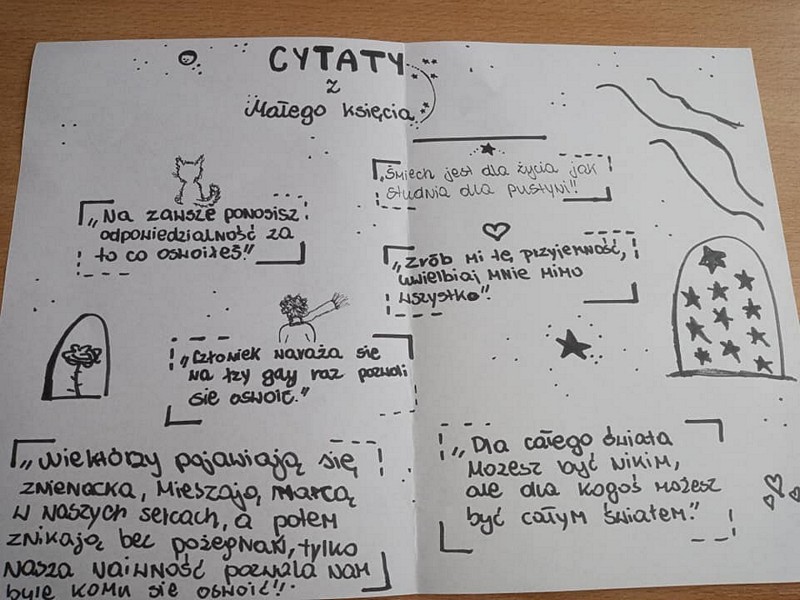 CYTATY
z
Małego księcia
„Na zawsze ponosisz
odpowiedzialność za
to co oswoiłeś!”
„Śmiech jest dla życia jak
studnia dla pustyni!”
„Zrób mi tę przyjemność,
uwielbiaj mnie mimo
wszystko”.
„Człowiek naraża się
na łzy gdy raz pozwoli
się oswoić.”
„Niektórzy pojawiają się
znienacka, mieszają
w naszych sercach, a potem
znikają bez pożegnań, tylko
nasza naiwność pozwala nam
byle komu się oswoić”!
„Dla całego świata
możesz być nikim,
ale dla kogoś możesz
być całym światem.”